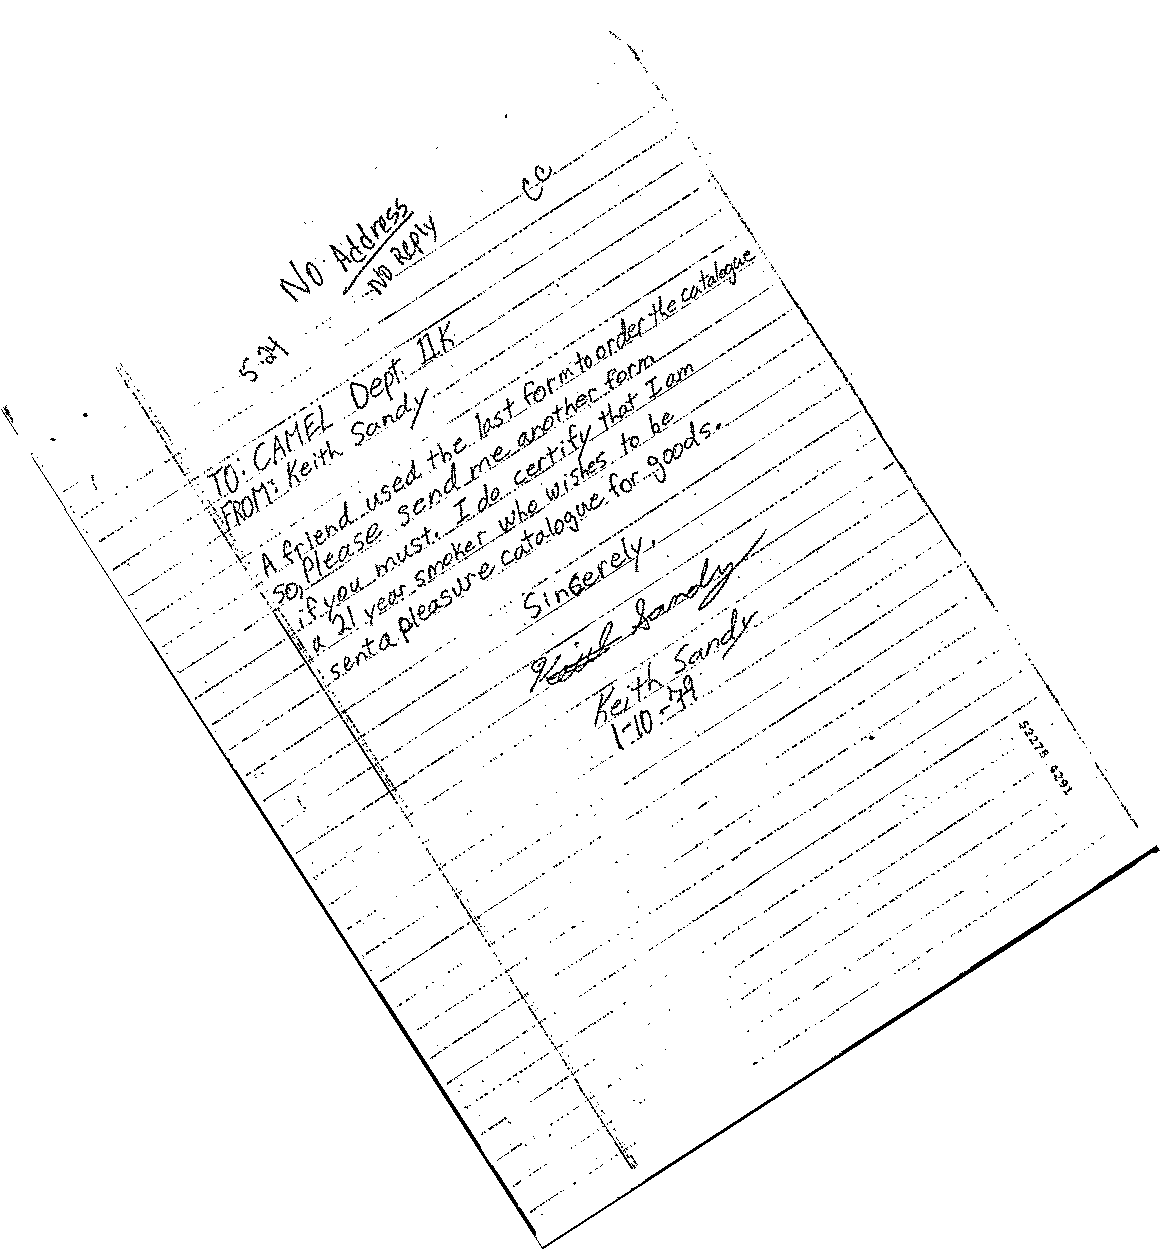 CC
No Address
No Reply
5-24
TO: CAMEL Dept. IIK
FROM: Keith Sandy
A friend used the last form to order the catalogue
so, please send me another form
if you must. I do certify that I am
a 21 year smoker who wishes to be
sent a pleasure catalogue for goods.
Sincerely,
Keith Sandy
Keith Sandy
1-10-79
52278 4291